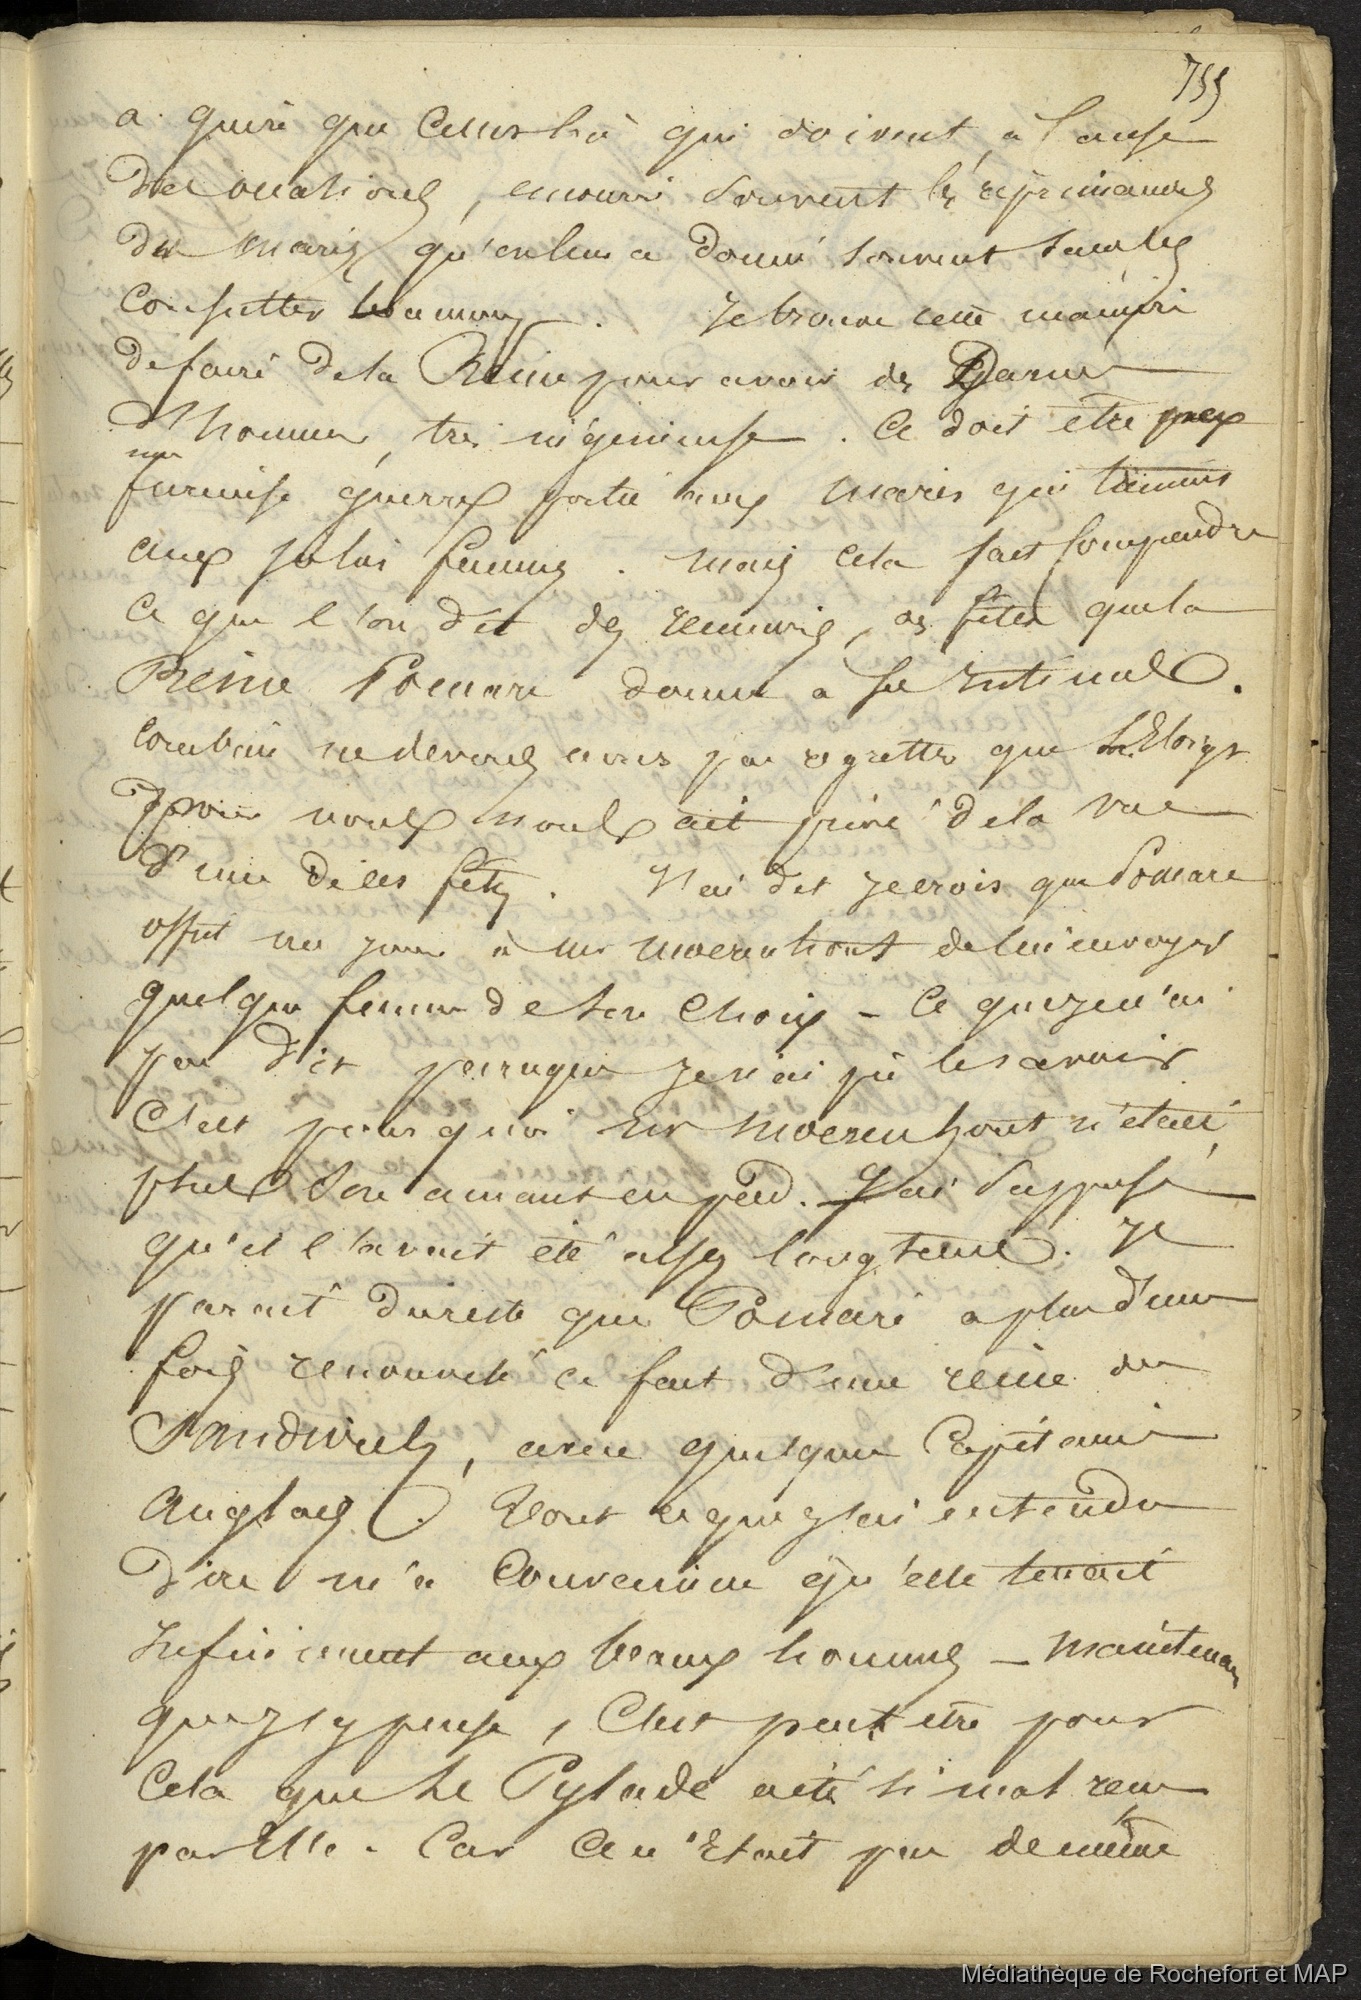 755
a guère que celles là qui doivent, à l'aise
des ovations, encourir souvent les réprimandes
des maris qu'on leur a donné souvent sans les
consulter. Je trouve cette manière
de faire de la Reine pour avoir des Dames
d'honneur, très ingénieuse. Ce doit être
une
furieuse guerre portée aux maris qui tiennent
aux jolies femmes. Mais cela fait comprendre
ce que l'on dit des réunions, des fêtes que la
Reine Pomaré donne à ses intimes.
Combien ne devons nous pas regretter que
nous ait privé de la vue
d'une de ces fêtes. J'ai dit je crois que Pomaré
offrit un jour à Mr Moerenhout de lui envoyer
quelque femme de son choix – Ce que je n'ai
pas dit parceque je n'ai pu le savoir
c'est pourquoi Mr Moerenhout n'était
plus son amant en pied. J'ai supposé
qu'il l'avait été assez longtems. Il
parait du reste que Pomaré a plus d'une
fois renouvelé ce fait d'une reine des
Sandwichs, avec quelques Capitaines
Anglais. Tout ce que j'ai entendu
dire m'a convaincu qu'elle tenait
infiniment aux beaux hommes – Maintenant
que j'y pense, C'est peut être pour
Cela que le Pylade a été si mal reçu
par Elle. Car Ce n'était pas de même
Médiathèque de Rochefort et MAP